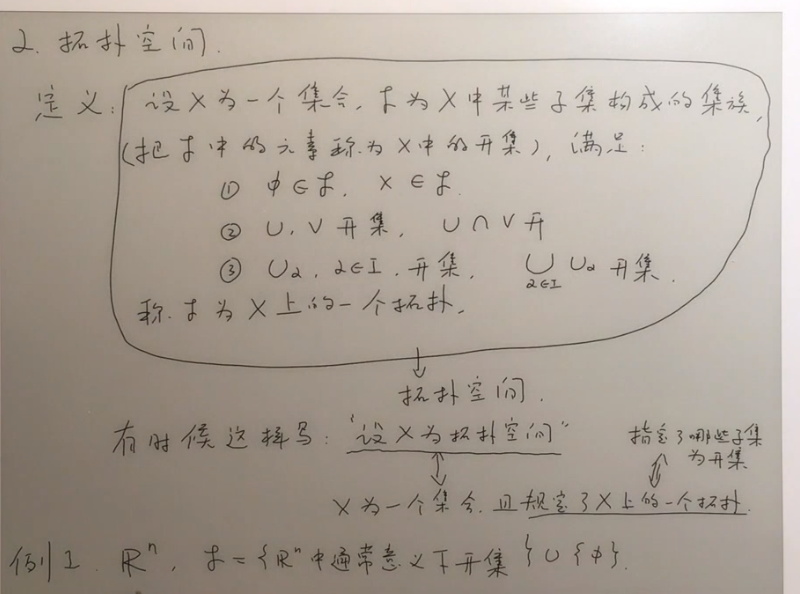 2. 拓扑空间.
定义: 设X为一个集合, 𝒯为X中某些子集构成的集族,
(把𝒯中的元素称为X中的开集), 满足:
① ϕ∈𝒯, X∈𝒯.
② U, V 开集, U∩V开
③ Uα, α∈I, 开集, ⋃α∈I Uα 开集.
称 𝒯为X上的一个拓扑.
↓
拓扑空间.
有时候这样写: "设X为拓扑空间"
指定了哪些子集
为开集
X为一个集合, 且规定了X上的一个拓扑.
例1. ℝⁿ, 𝒯={ℝⁿ中通常意义下开集}∪{ϕ}.